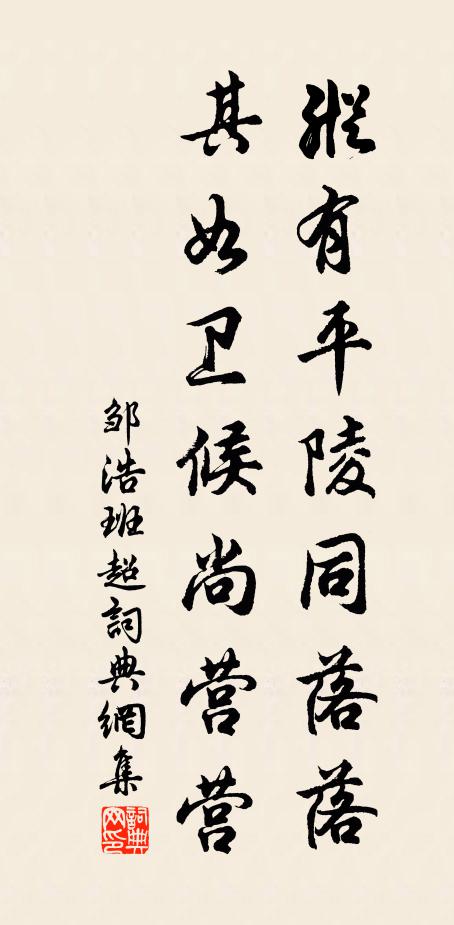 縱有平陵同落落
其如卫候尚营营
邹浩班超詞典網集
詞典
网印